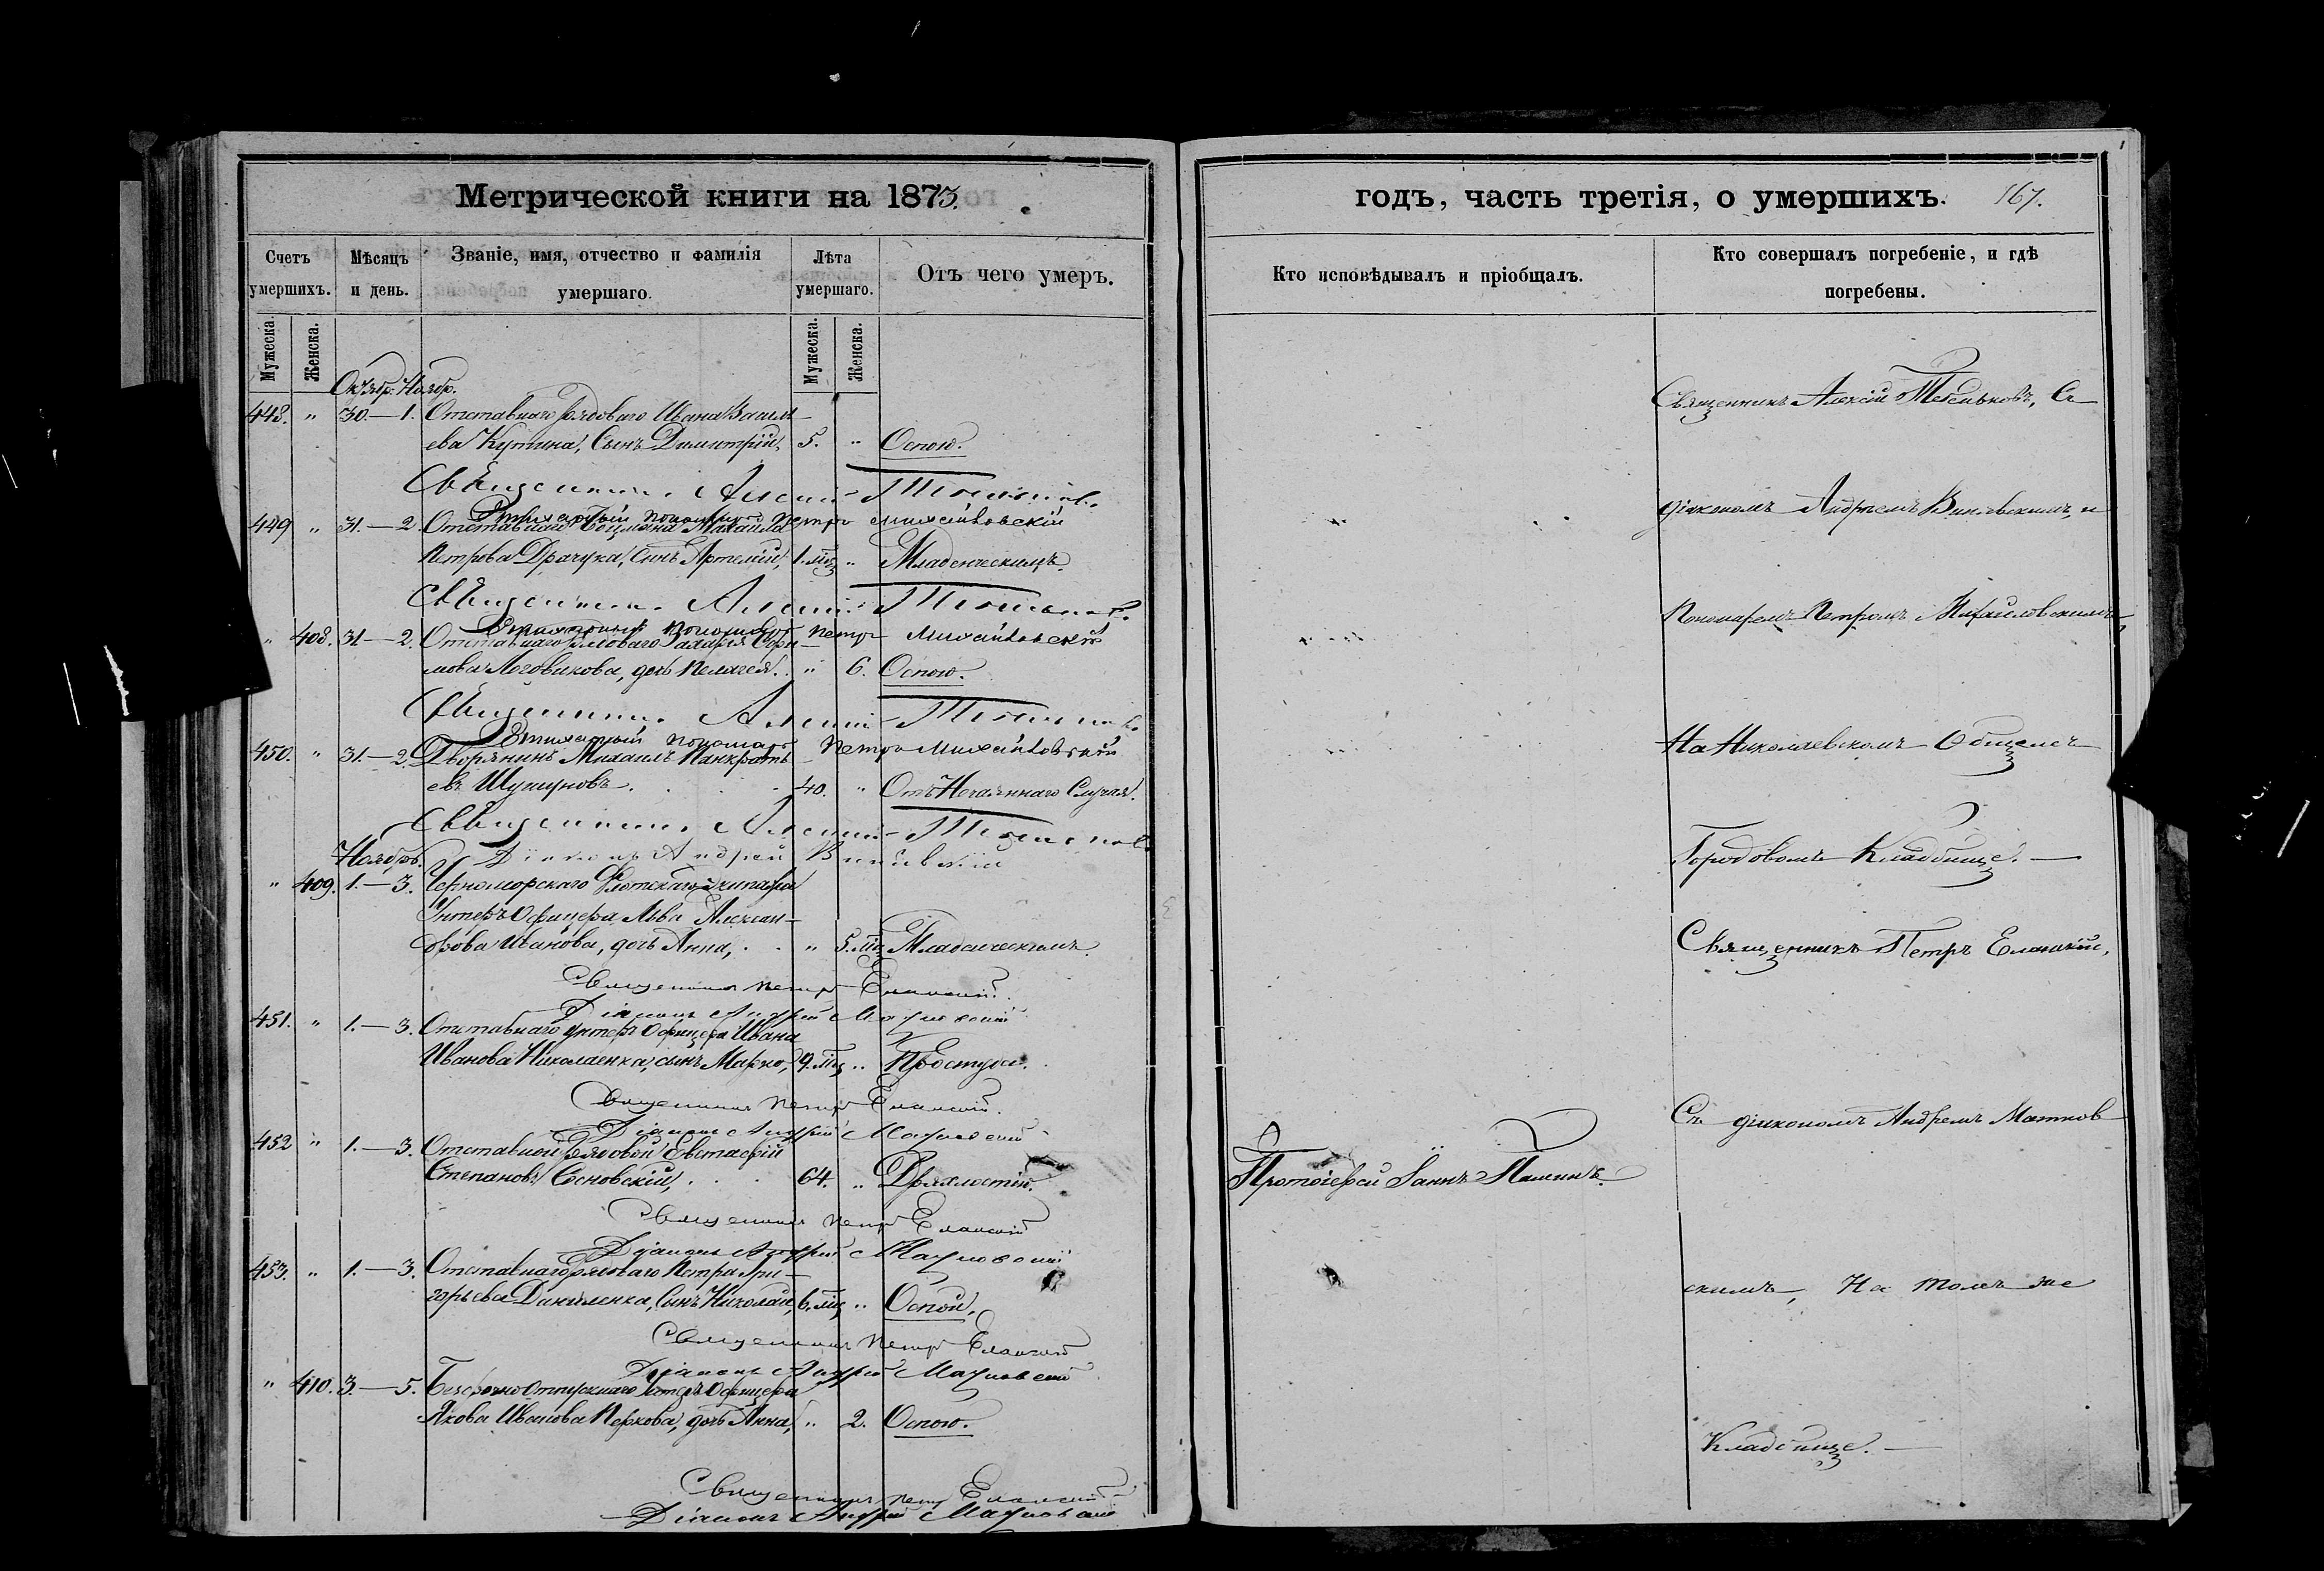 Метрической книги на 1873.
годъ, часть третія, о умершихъ.
167.
Счетъ умершихъ.
Мѣсяцъ и день.
Званіе, имя, отчество и фамилія умершаго.
Лѣта умершаго.
Отъ чего умеръ.
Кто исповѣдывалъ и пріобщалъ.
Кто совершалъ погребеніе, и гдѣ погребены.
Мужеска.
Женска.
Мужеска.
Женска.
Октябр. Ноябр.
448. " 30.—1. Отставнаго рядоваго Ивана Василь-
ева Кутина, Сынъ Димитрій, 5. " Оспою.
Священникъ Алексій
Стихарный пономарь Петръ Михайловскій
449 " 31.—2. Отставнаго Боцмана Михаила
Петрова Драчука, Сынъ Артемій, 1. мц " Младенческимъ.
Священникъ Алексій
Стихарный пономарь Петръ Михайловскій
" 408. 31—2. Отставнаго рядоваго Захарія
мова Логовикова, дочь Пелагея. " 6. Оспою.
Священникъ Алексій
Стихарный пономарь Петръ Михайловскій
450. " 31.—2. Дворянинъ Михаилъ Панкратъ-
евъ Шукуновъ. 40. " Отъ Нечаяннаго Случая.
Священникъ Алексій
Ноябрь. Діаконъ Андрей
" 409. 1.—3. Черноморскаго Флотскаго экипажа
Унтеръ Офицера Льва Алексан-
дрова Иванова, дочь Анна, " 5. мц Младенческимъ.
Священникъ Петръ Еланскій.
Діаконъ Андрей
451. " 1.—3. Отставнаго унтеръ Офицера Ивана
Иванова Николаенка, сынъ Марко, 9. мц " Простуды.
Священникъ Петръ Еланскій.
Діаконъ Андрей
452 " 1.—3. Отставной Рядовой Евстафій
Степановъ Сосновскій, 64. " Дряхлостію.
Священникъ Петръ Еланскій
Діаконъ Андрей
453. " 1.—3. Отставнаго рядоваго Петра Гри-
горьева Даниленка, Сынъ Николай, 6. мц " Оспой.
Священникъ Петръ Еланскій
Діаконъ Андрей
" 410. 3.—5. Безсрочно отпускнаго унтеръ Офицера
Якова Иванова Перкова, дочь Анна, " 2. Оспою.
Священникъ Петръ Еланскій
Діаконъ Андрей
Протоіерей Іаннъ
Священникъ Алексій Съ
діакономъ Андреемъ и
Пономаремъ Петромъ Михайловскимъ,
На Николаевскомъ Общемъ
Городовомъ Кладбище.—
Священникъ Петръ Еланскій,
Съ діакономъ Андреемъ Матков
скимъ, На томъ же
Кладбище.—